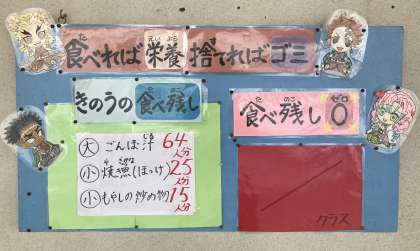 食べれば栄養捨てればゴミ
きのうの食べ残し
大 ごんぼ汁 64人分
小 焼き魚(ほっけ) 25人分
小 もやしの炒め物 15人分
食べ残し0
クラス